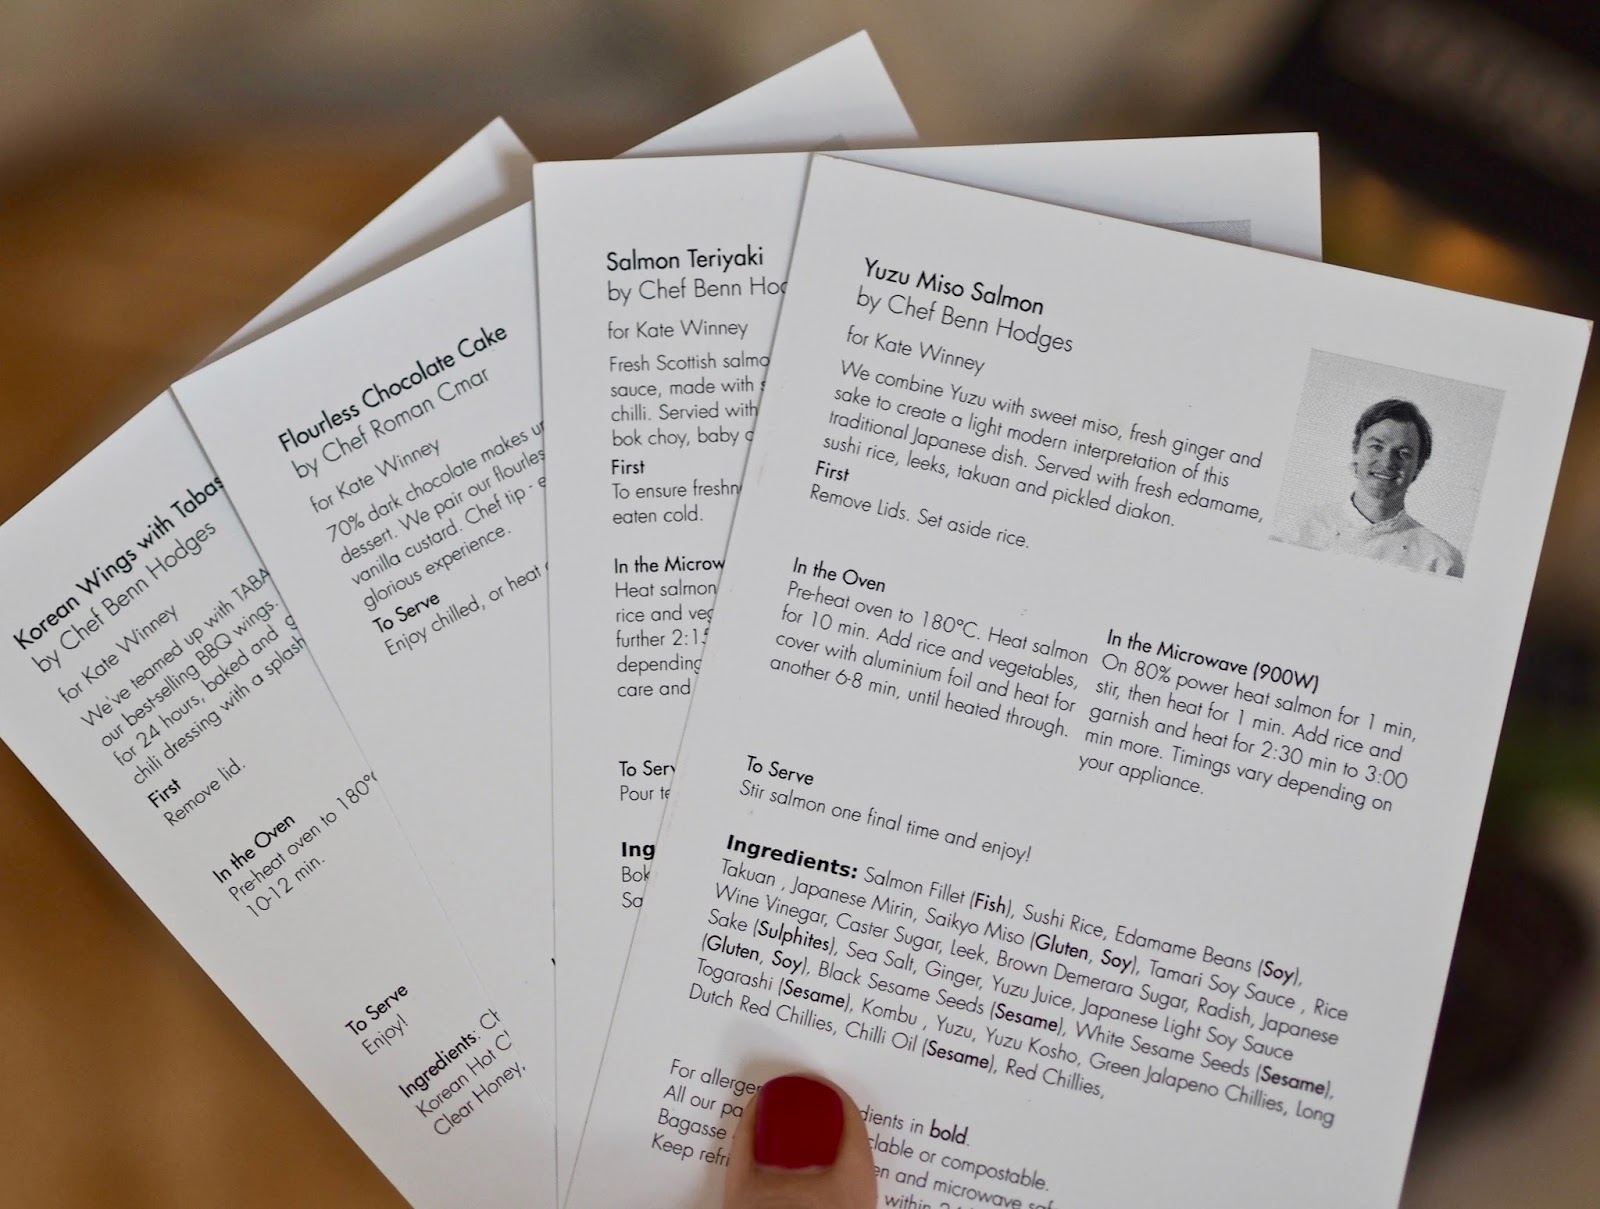 Korean Wings with
by Chef Benn Hodges
for Kate Winney
We've teamed up with
our best-selling BBQ wings.
for 24 hours, baked and
chili dressing with a splash
First
Remove lid.
In the Oven
Pre-heat oven to 180°
10-12 min.
To Serve
Enjoy!
Ingredients:
Korean Hot
Clear Honey,
Flourless Chocolate Cake
by Chef Roman Cmar
for Kate Winney
70% dark chocolate makes
dessert. We pair our
vanilla custard. Chef tip -
glorious experience.
To Serve
Enjoy chilled, or heat
Salmon Teriyaki
by Chef Benn
for Kate Winney
Fresh Scottish
sauce, made with
chilli. Servied with
bok choy, baby
First
To ensure
eaten cold.
In the
Heat salmon
rice and
further
depending
care and
To
Pour
Yuzu Miso Salmon
by Chef Benn Hodges
for Kate Winney
We combine Yuzu with sweet miso, fresh ginger and
sake to create a light modern interpretation of this
traditional Japanese dish. Served with fresh edamame,
sushi rice, leeks, takuan and pickled diakon.
First
Remove Lids. Set aside rice.
In the Oven
Pre-heat oven to 180°C. Heat salmon
for 10 min. Add rice and vegetables,
cover with aluminium foil and heat for
another 6-8 min, until heated through.
In the Microwave (900W)
On 80% power heat salmon for 1 min,
stir, then heat for 1 min. Add rice and
garnish and heat for 2:30 min to 3:00
min more. Timings vary depending on
your appliance.
To Serve
Stir salmon one final time and enjoy!
Ingredients: Salmon Fillet (Fish), Sushi Rice, Edamame Beans (Soy),
Takuan , Japanese Mirin, Saikyo Miso (Gluten, Soy), Tamari Soy Sauce , Rice
Wine Vinegar, Caster Sugar, Leek, Brown Demerara Sugar, Radish, Japanese
Sake (Sulphites), Sea Salt, Ginger, Yuzu Juice, Japanese Light Soy Sauce
(Gluten, Soy), Black Sesame Seeds (Sesame), White Sesame Seeds (Sesame),
Togarashi (Sesame), Kombu , Yuzu, Yuzu Kosho, Green Jalapeno Chillies, Long
Dutch Red Chillies, Chilli Oil (Sesame), Red Chillies,
For in bold.
All our or compostable.
Bagasse and microwave
Keep within